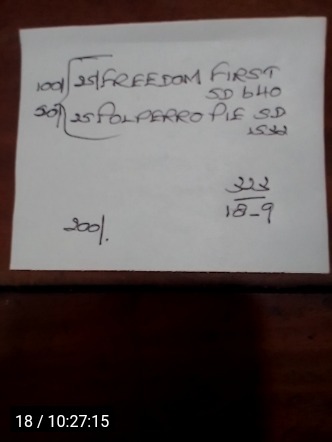 100/ 25/ FREEDOM FIRST
SD 640
50/ 25 POLPERRO PIE SD
1532
222
18-9
200/.
18 / 10:27:15